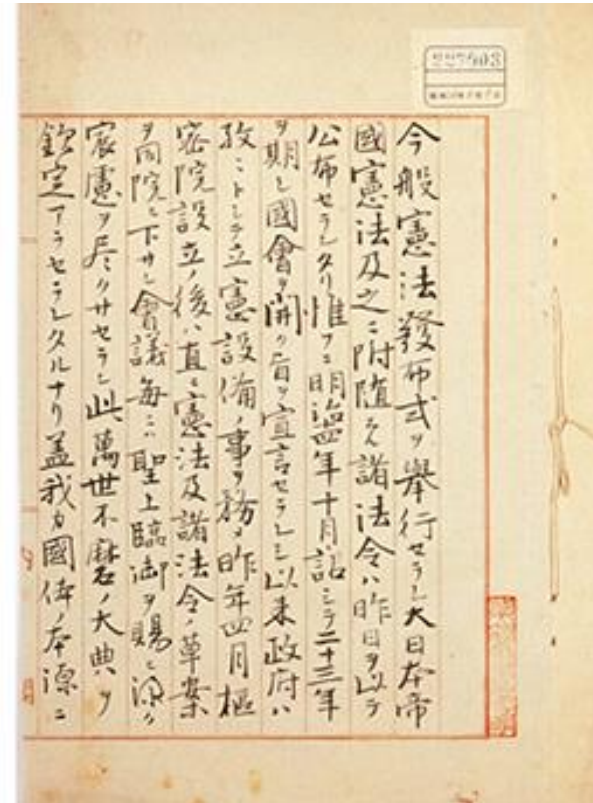 今般憲法發布式ヲ擧行セラレ大日本帝
國憲法及之ニ附随スル諸法令ハ昨日ヲ以テ
公布セラレタリ惟フニ明治十四年十月詔シテ二十三年
ヲ期シ國會ヲ開ク旨ヲ宣言セラレシ以来政府ハ
孜々トシテ立憲設備ノ事ヲ務メ昨年四月樞
密院設立ノ後ハ直ニ憲法及諸法令ノ草案
ヲ同院ニ下サレ會議毎ニハ聖上臨御ヲ賜ヒ深ク
宸慮ヲ尽クサセラレ此萬世不磨ノ大典ヲ
欽定アラセラレタルナリ蓋我カ國体ノ本源ニ